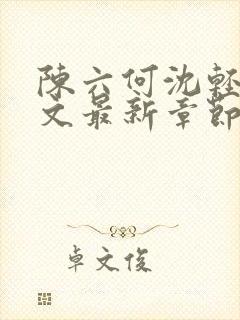 陳六何沈輕
文最新章節
卓文俊